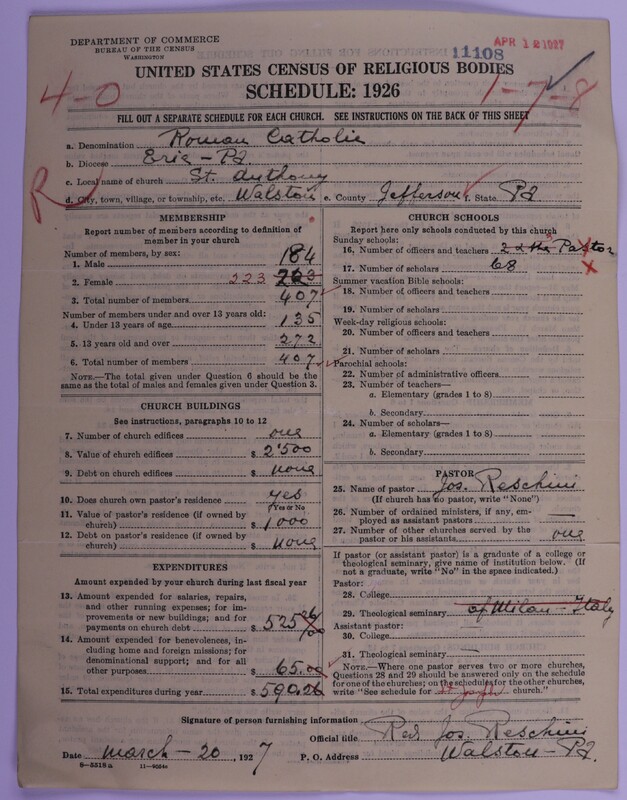 DEPARTMENT OF COMMERCE
BUREAU OF THE CENSUS
WASHINGTON
APR 12 1927
11108
UNITED STATES CENSUS OF RELIGIOUS BODIES
SCHEDULE: 1926
4-0
1-7-8
FILL OUT A SEPARATE SCHEDULE FOR EACH CHURCH. SEE INSTRUCTIONS ON THE BACK OF THIS SHEET
R
a. Denomination Roman Catholic
b. Diocese Erie - Pa
c. Local name of church St. Anthony
d. City, town, village, or township, etc. Walston e. County Jefferson f. State Pa
MEMBERSHIP
Report number of members according to definition of member in your church
Number of members, by sex:
1. Male 184
2. Female 223 223
3. Total number of members 407
Number of members under and over 13 years old:
4. Under 13 years of age 135
5. 13 years old and over 272
6. Total number of members 407
NOTE.—The total given under Question 6 should be the same as the total of males and females given under Question 3.
CHURCH BUILDINGS
See instructions, paragraphs 10 to 12
7. Number of church edifices one
8. Value of church edifices $ 2500
9. Debt on church edifices $ none
10. Does church own pastor's residence? yes
(Yes or No)
11. Value of pastor's residence (if owned by church) $ 1000
12. Debt on pastor's residence (if owned by church) $ none
EXPENDITURES
Amount expended by your church during last fiscal year
13. Amount expended for salaries, repairs, and other running expenses; for improvements or new buildings; and for payments on church debt $ 525 26
14. Amount expended for benevolences, including home and foreign missions; for denominational support; and for all other purposes $ 65.00
15. Total expenditures during year $ 590.26
CHURCH SCHOOLS
Report here only schools conducted by this church
Sunday schools:
16. Number of officers and teachers 3 2 & the Pastor
17. Number of scholars 68
Summer vacation Bible schools:
18. Number of officers and teachers
19. Number of scholars
Week-day religious schools:
20. Number of officers and teachers
21. Number of scholars
Parochial schools:
22. Number of administrative officers
23. Number of teachers—
a. Elementary (grades 1 to 8)
b. Secondary
24. Number of scholars—
a. Elementary (grades 1 to 8)
b. Secondary
PASTOR
25. Name of pastor Jos. Reschini
(If church has no pastor, write "None")
26. Number of ordained ministers, if any, employed as assistant pastors —
27. Number of other churches served by the pastor or his assistants one
If pastor (or assistant pastor) is a graduate of a college or theological seminary, give name of institution below. (If not a graduate, write "No" in the space indicated.)
Pastor:
28. College
29. Theological seminary of Milan - Italy
Assistant pastor:
30. College
31. Theological seminary —
NOTE.—Where one pastor serves two or more churches, Questions 28 and 29 should be answered only on the schedule for one of the churches; on the schedules for the other churches, write "See schedule for St Joseph church."
Signature of person furnishing information
Official title Rev. Jos. Reschini
Date march - 20, 1927 P. O. Address Walston - Pa.
8—5318a 11—9054